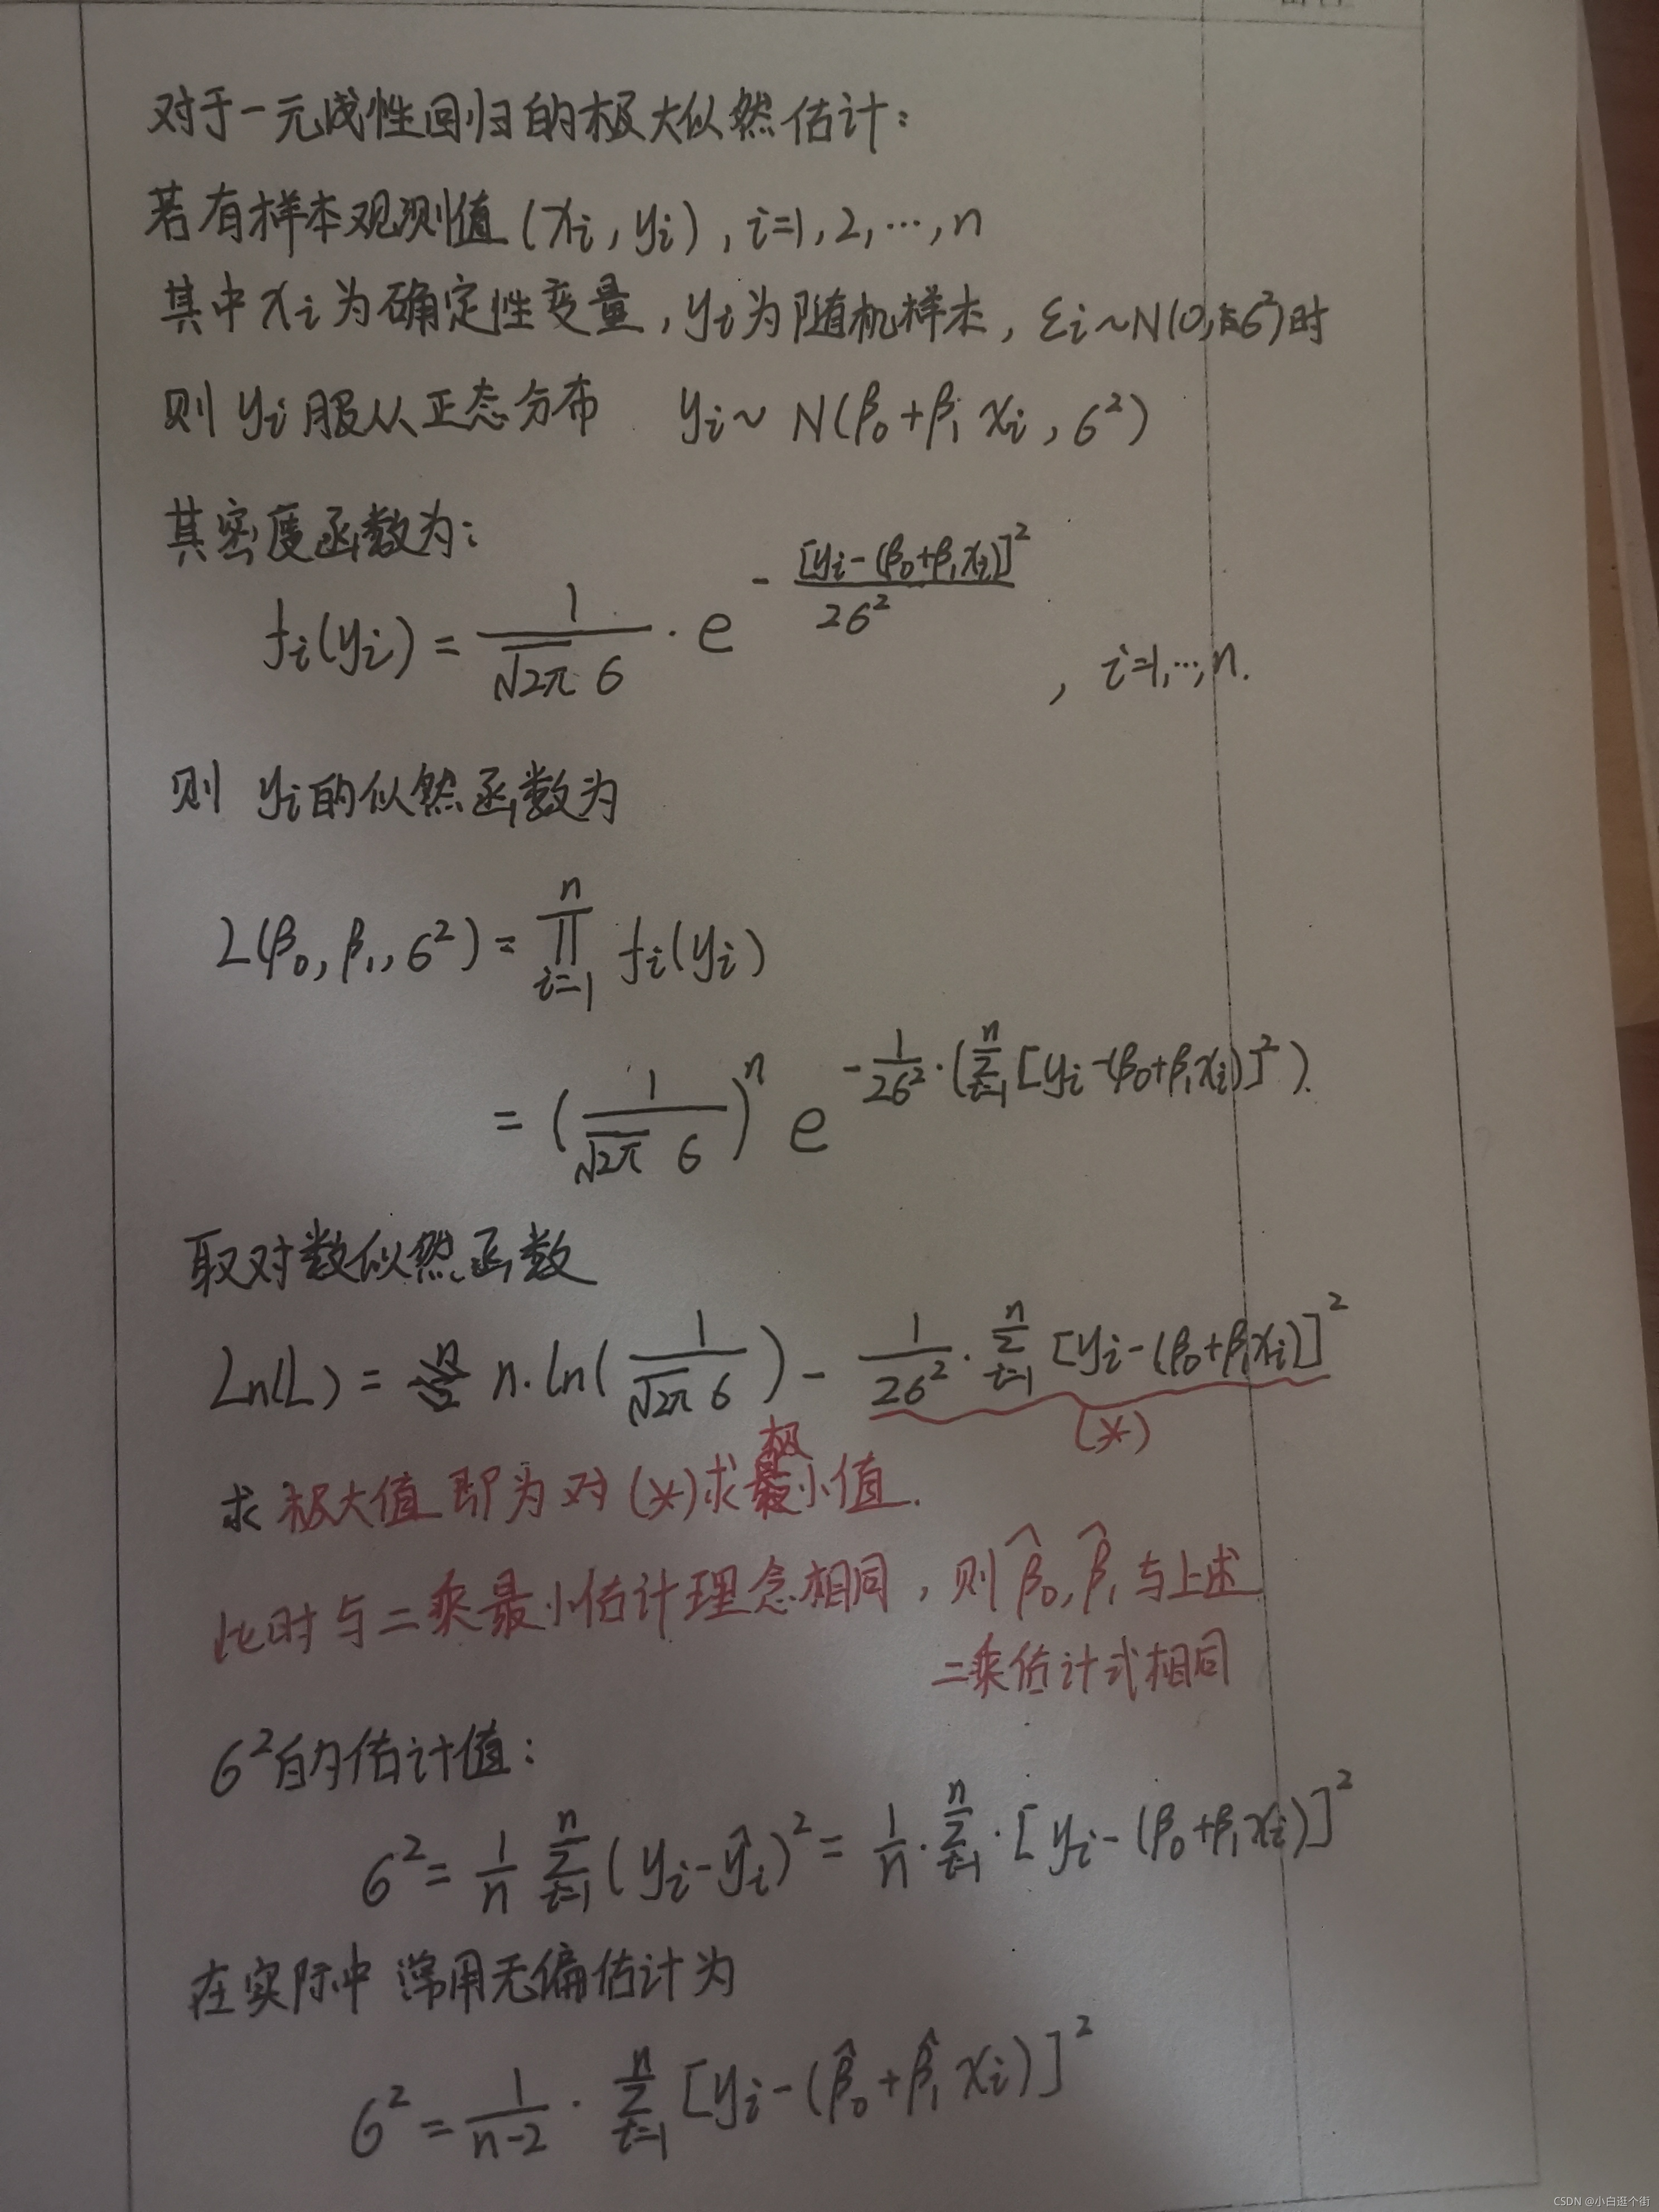 对于一元线性回归的极大似然估计：
若有样本观测值 (xi, yi), i=1, 2, ⋯, n
其中 xi 为确定性变量, yi为随机样本, εi ~ N(0, σ²)时
则 yi 服从正态分布 yi ~ N(β0 + β1 xi, σ²)
其密度函数为：
fi(yi) = 1/(√2π σ) · e^(-[yi-(β0+β1xi)]²/2σ²), i=1,⋯,n.
则 yi的似然函数为
L(β0, β1, σ²) = ∏(i=1→n) fi(yi)
= (1/(√2π σ))^n e^(-1/2σ² · (∑(i=1→n) [yi-(β0+β1xi)]²).
取对数似然函数
Ln(L) = n·ln(1/(√2π σ)) - 1/2σ² · ∑(i=1→n) [yi-(β0+β1xi)]²
(*)
求极大值即为对(*)求极小值.
此时与二乘最小估计理念相同, 则β̂0, β̂1与上述
二乘估计式相同
σ²的估计值：
σ² = 1/n ∑(i=1→n) (yi-ŷi)² = 1/n · ∑(i=1→n) · [yi-(β0+β1xi)]²
在实际中 常用无偏估计为
σ² = 1/(n-2) · ∑(i=1→n) [yi-(β̂0+β̂1xi)]²
CSDN @小白逛个街